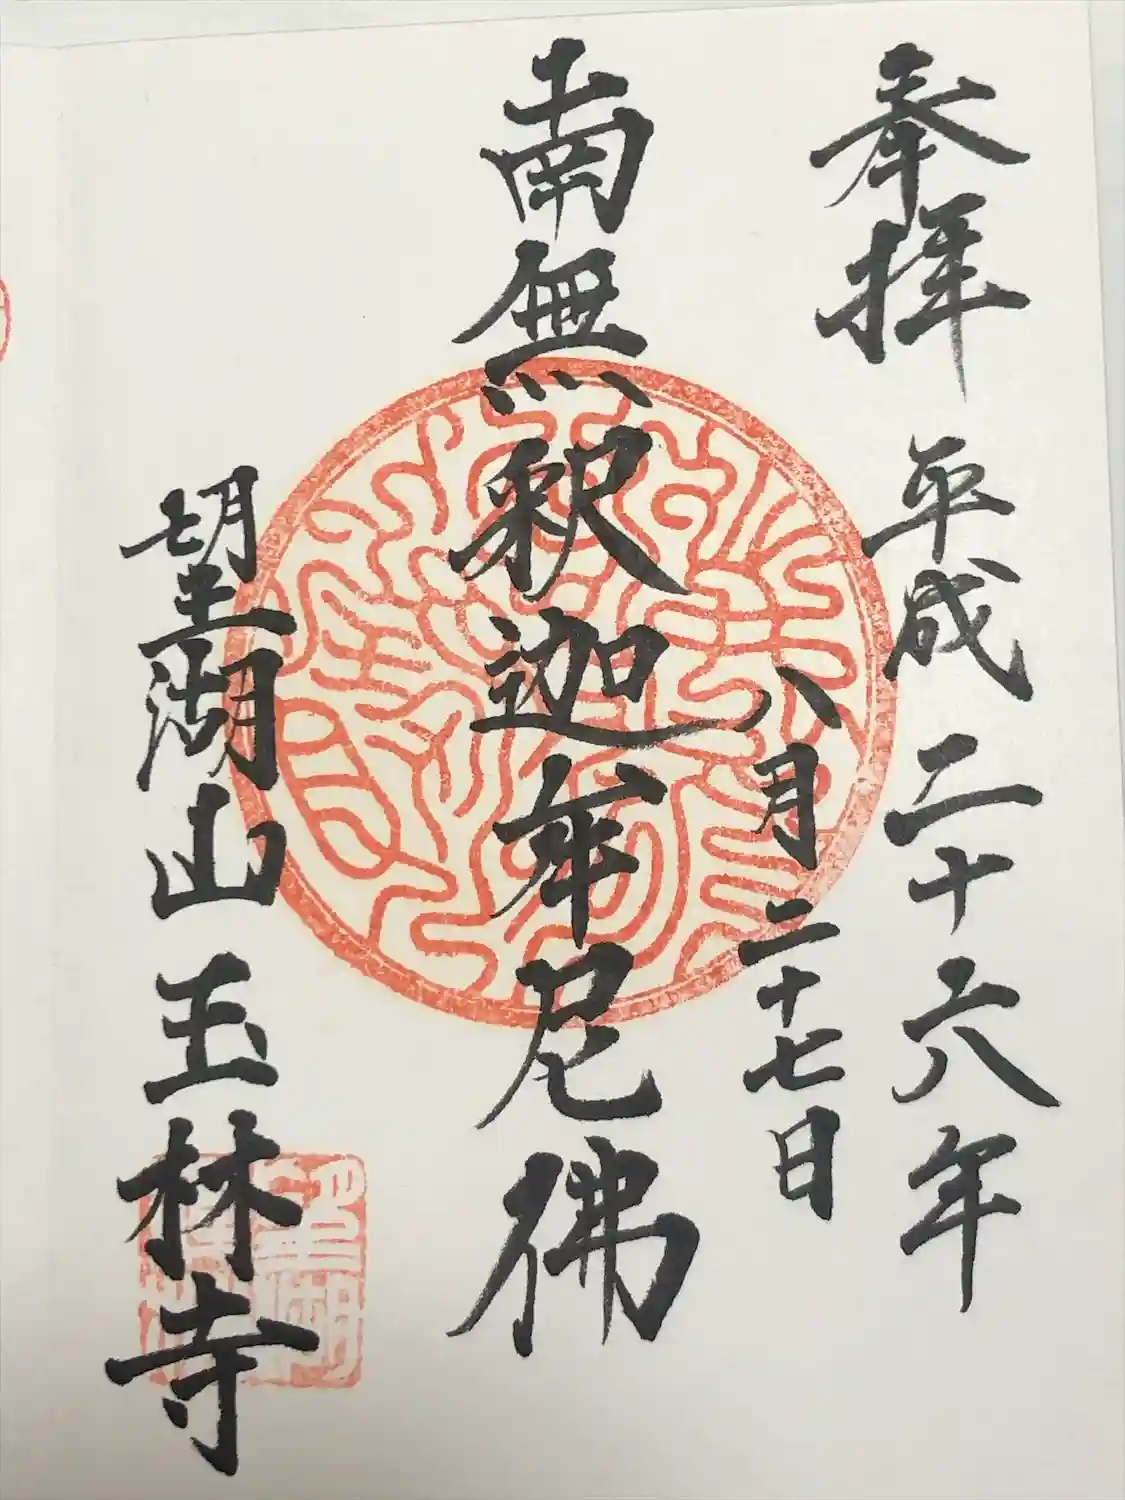 奉拝 平成二十六年
八月二十七日
南無釈迦牟尼佛
望湖山 玉林寺